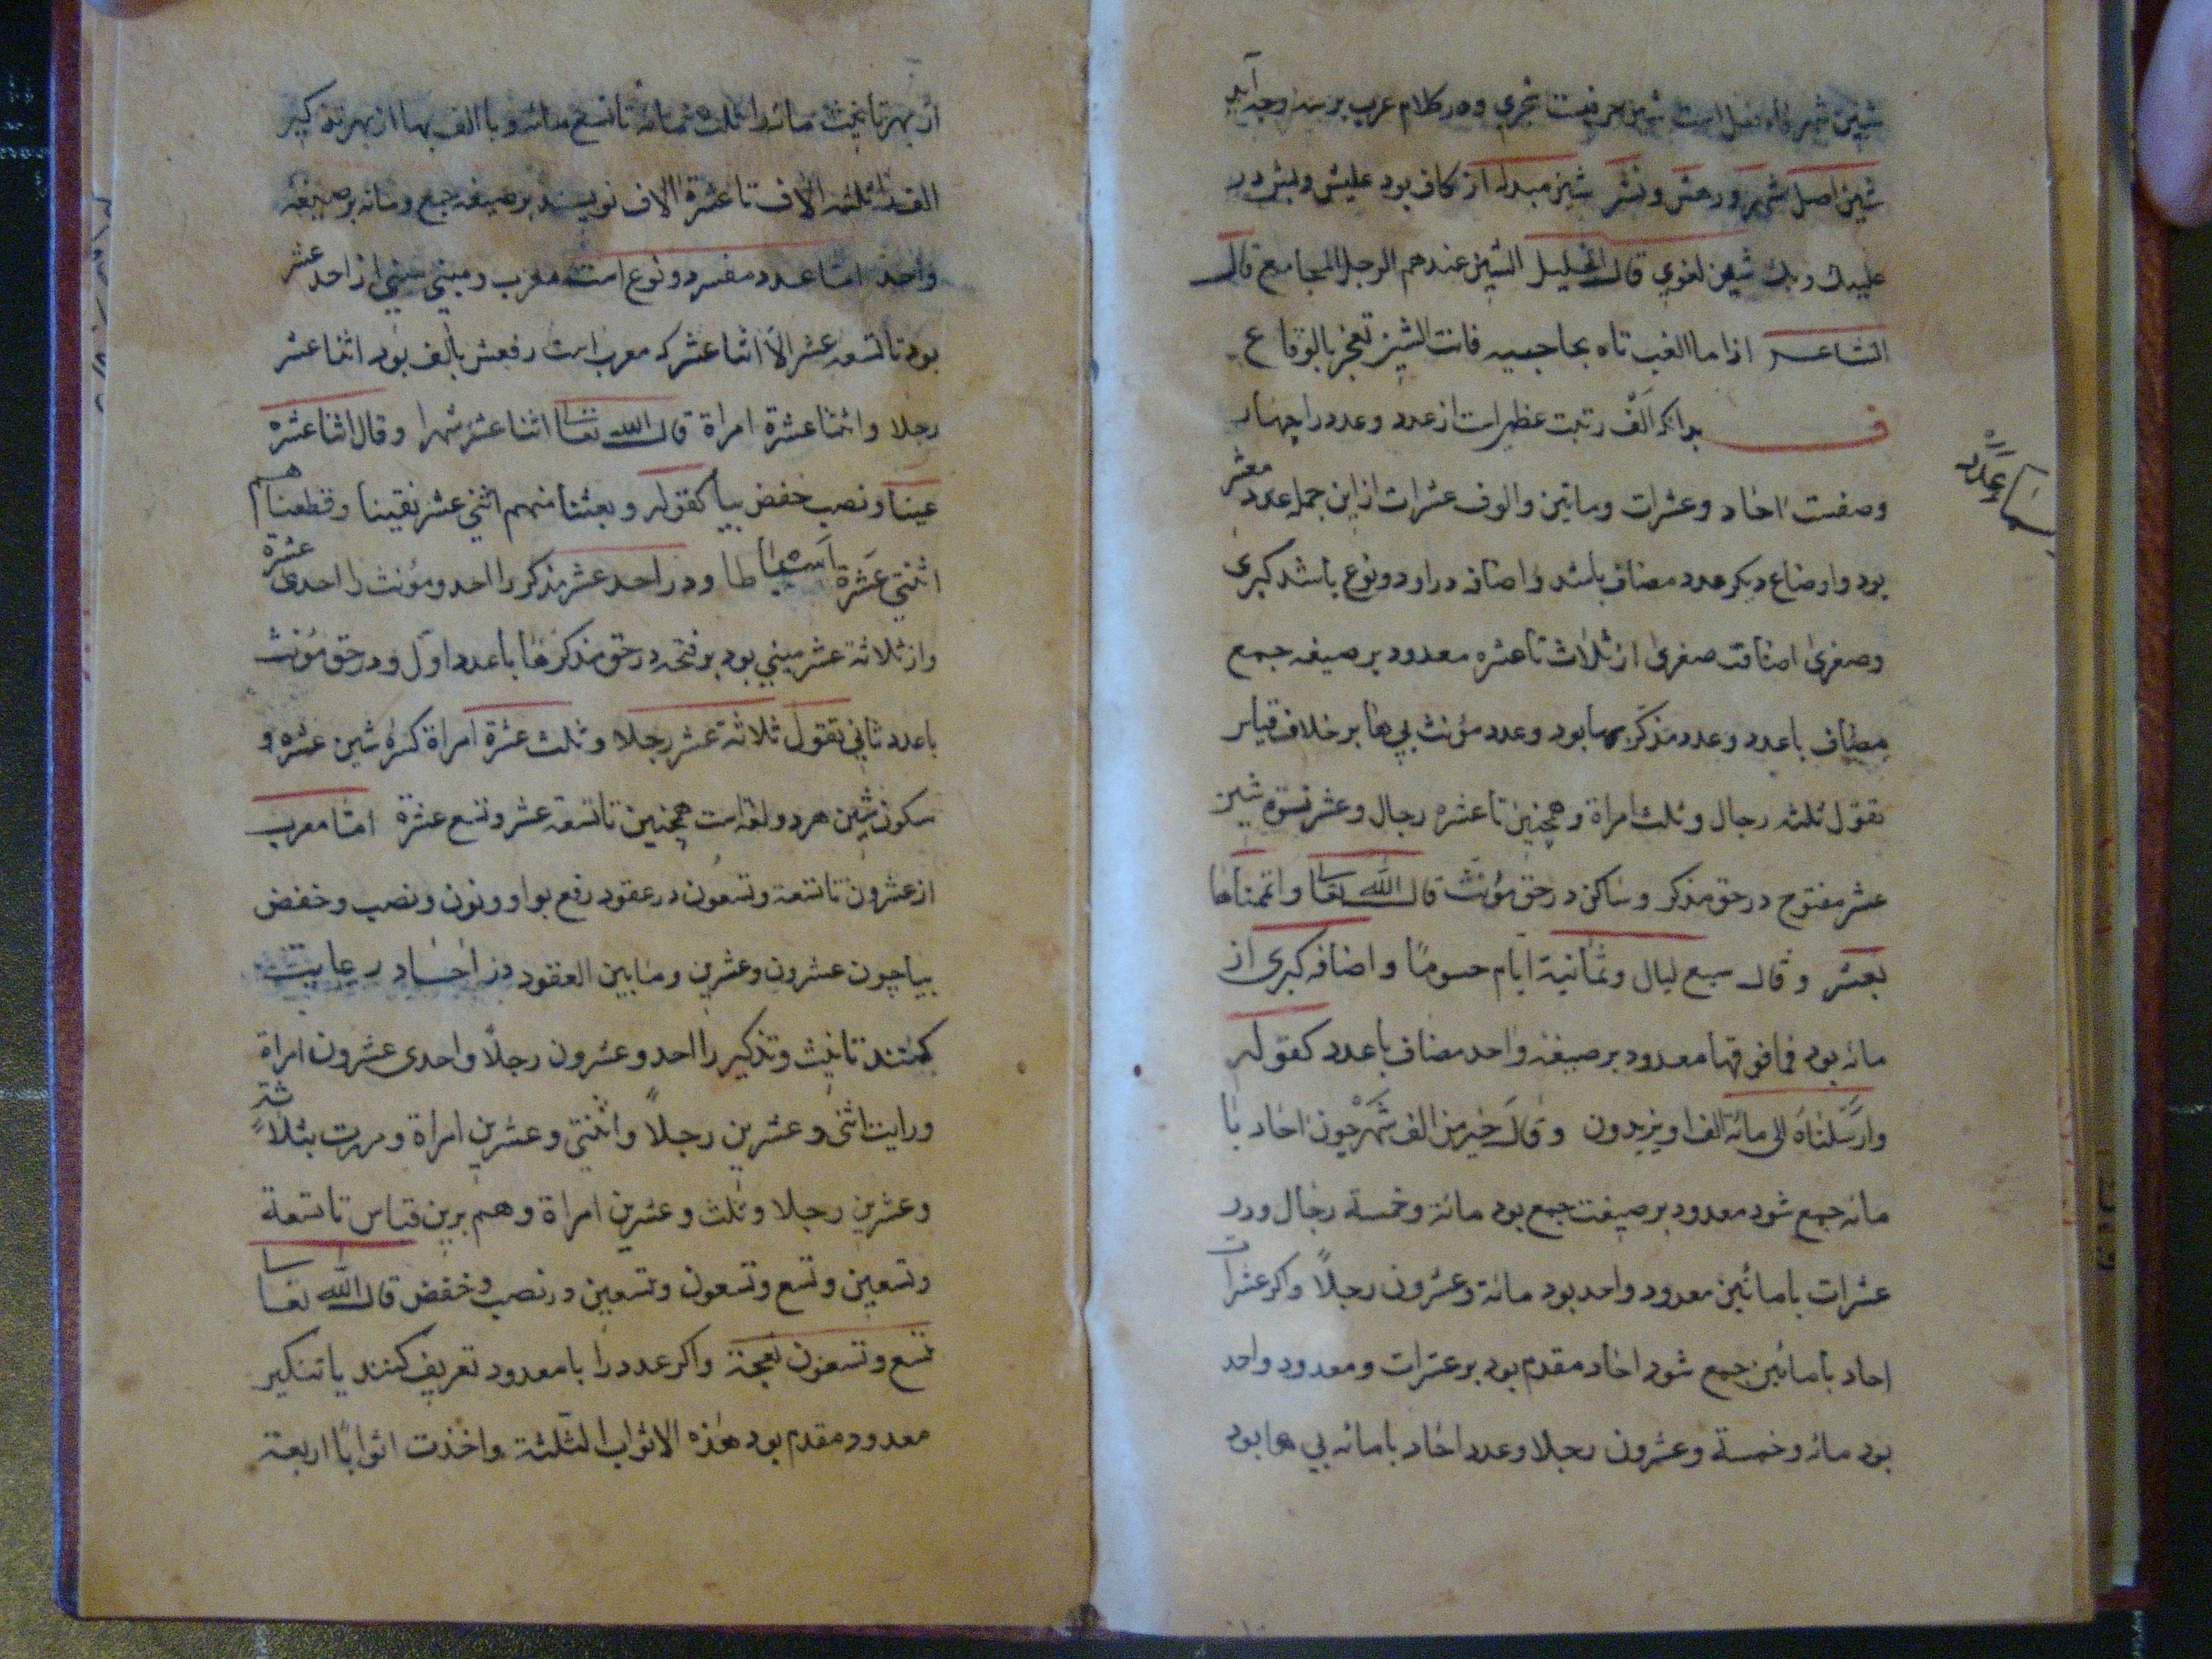 شین اصل شهر و رعش و نشر شین مبدل از کاف بود علیش و بش در
علیك و بك شین لغوی قال الخلیل الشین عندهم الرجل المجامع قال
الشاعر اذا ما الغب تاه بحاجبیه فانت الشین تفخر بالوقاع
ف بدانکه الف رتبت عظیرات از عدد و عدد را چهار
وصفت احاد و عشرات و ماتین و الوف عشرات ازین جمله عدد معشر
بود و اوضاع دیکر عدد مضاف باشد و اضافه در او دو نوع باشد کبری
وصغری اضافت صغری از ثلاث تا عشره معدود بر صیغه جمع
مضاف با عدد و عدد مذکر بها بود و عدد مؤنث بی ها بر خلاف قیاس
تقول ثلثه رجال و ثلث امراة و همچنین تا عشره رجال و عشر نسوة شین
عشر مفتوح در حق مذکر و ساکن در حق مؤنث قال الله تعا واتممناها
بعشر و قال سبع لیال وثمانیة ایام حسوما و اضافه کبری از
مائه بود فما فوقها معدود بر صیغه واحد مضاف با عدد کقوله
وارسلناه الی مائة الف او یزیدون و قال خیر من الف شهر چون احاد با
مائه جمع شود معدود بر صیغت جمع بود مائة وخمسة رجال ودر
عشرات با مائین معدود واحد بود مائة وعشرون رجلاً واکر عشرات
احاد با مائین جمع شود احاد مقدم بود بر عشرات و معدود واحد
بود مائه وخمسة وعشرون رجلا وعدد احاد با مائه بی ها بود
از بهر تانیث مائه را ثلث ثمائة تا تسع مائه و با الف بها از بهر تذکیر
الف را ثلثه الاف تا عشرة الاف نویسند بر صیغه جمع ومائه بر صیغه
واحد اما عدد مفسر دو نوع است معرب و مبنی مبنی از احد عشر
بود تا تسعه عشر الا اثنا عشر که معرب است رفعش بالف بود اثنا عشر
رجلا واثنتا عشرة امراة قال الله تعا اثنا عشر شهرا وقال اثنتا عشره
عینا و نصب خفض بیا کقوله وبعثنا منهم اثنی عشر نقیبنا وقطعناهم
اثنتی عشرة اسباطا و در احد عشر مذکر را احد و مؤنث را احدی عشرة
واز ثلاثة عشر مبنی بود بر فتحه در حق مذکر ها با عدد اول و در حق مؤنث
با عدد ثانی تقول ثلاثة عشر رجلا و ثلث عشرة امراة کسره شین عشره و
سکون شین هر دو لغه است همچنین تا تسعة عشر وتسع عشرة اما معرب
از عشرون تا تسعة وتسعون در عقود رفع بواو ونون ونصب وخفض
بیا چون عشرون وعشرین وما بین العقود در احاد رعایت
کنند تانیث وتذکیر را احد وعشرون رجلاً واحدی عشرون امراة
ورایت اثنی وعشرین رجلاً واثنتی وعشرین امراة ومررت بثلاثة
وعشرین رجلا وثلث وعشرین امراة وهم برین قیاس تا تسعة
وتسعین وتسع وتسعون وتسعین در نصب وخفض قال الله تعا
تسع وتسعون نعجة واکر عدد را با معدود تعریف کنند یا تنکیر
معدود مقدم بود هذه الاثواب الثلثة واخذت اثوابًا اربعة